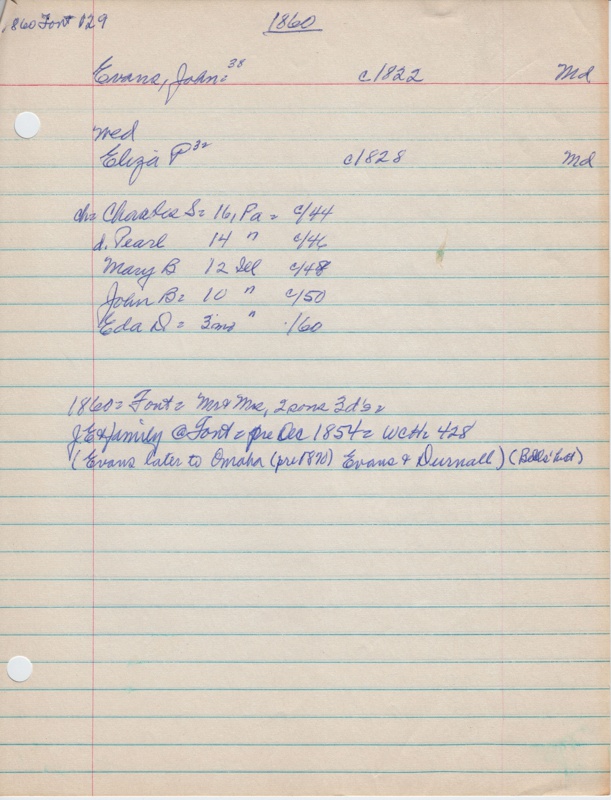 1860 Font 129
1860
Evans, John = 38 c1822 Md
wed
Eliza P 32 c1828 Md
ch = Charles S = 16, Pa = c/44
d. Pearl 14 " c/46
Mary B 12 Ill c/48
John B = 10 " c/50
Eda D = 3 mo " ·/60
1860 = Font = Mr & Mrs, 2 sons 3 d's =
JE & family @ Font = pre Dec 1854 = WCH = 428
(Evans later to Omaha (pre 1870) Evans & Durnall) (Bell's)